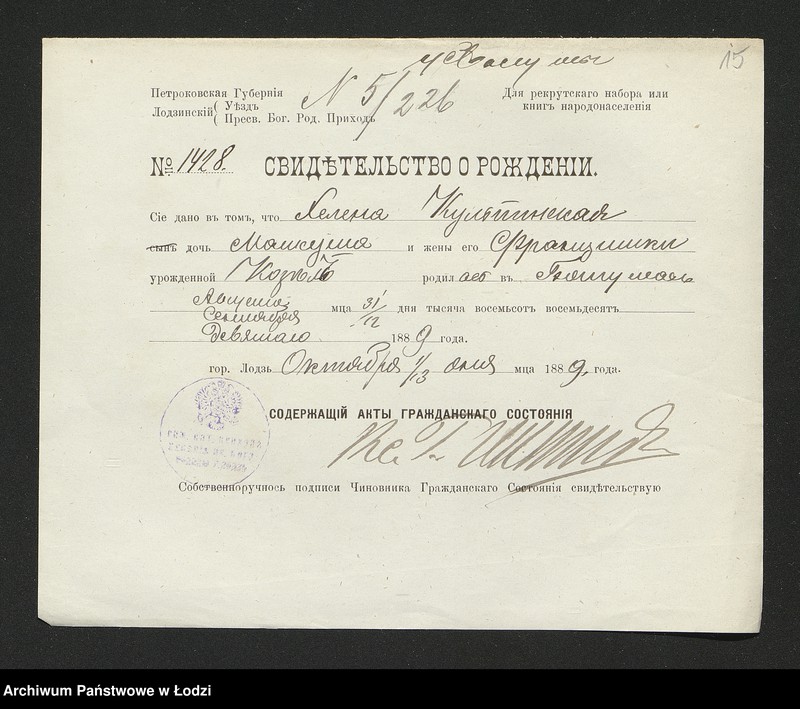 15
Петроковская Губернія
Лодзинскій Уѣздъ
Пресв. Бог. Род. Приходъ
N 5/226
Для рекрутскаго набора или
книгъ народонаселенія
№ 1428. СВИДѢТЕЛЬСТВО О РОЖДЕНІИ.
Сіе дано въ томъ, что Хелена
сынъ дочь и жены его Францишки
урожденной родилась въ
Августа 31/12
Сентября мца дня тысяча восемьсотъ восемьдесятъ
Девятаго 1889 года.
гор. Лодзь Октября 1/13 дня мца 1889, года.
СОДЕРЖАЩІЙ АКТЫ ГРАЖДАНСКАГО СОСТОЯНІЯ
Собственноручнось подписи Чиновника Гражданскаго Состоянія свидѣтельствую
Archiwum Państwowe w Łodzi